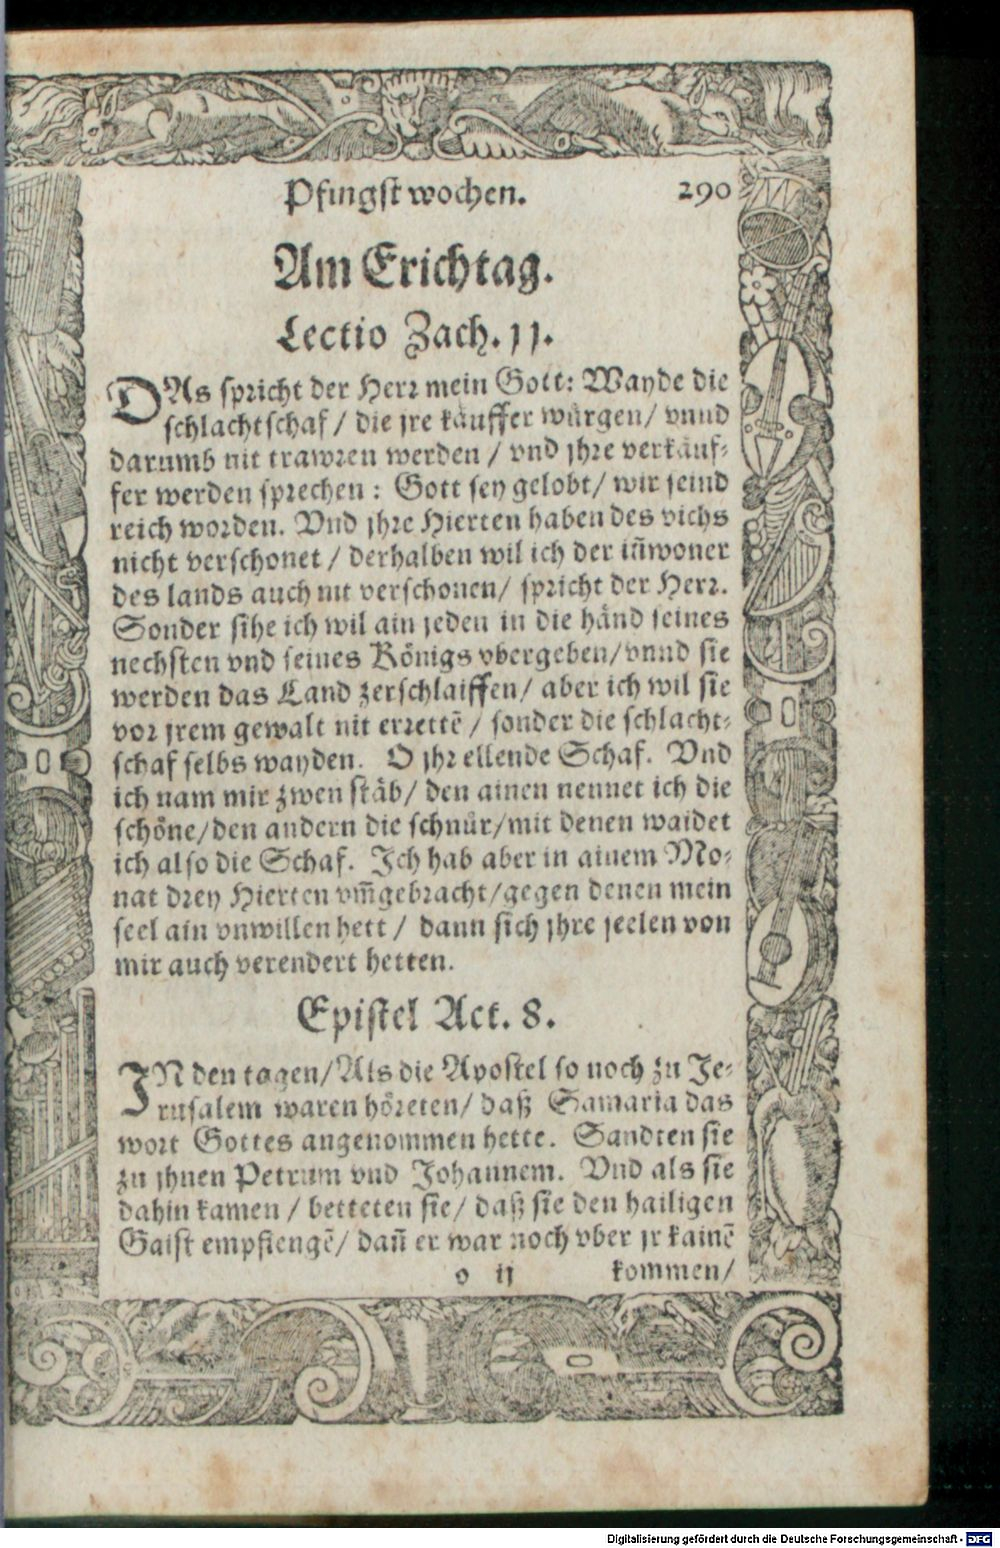 Pfingst wochen. 290
Am Erichtag.
Lectio Zach. 11.
DAs spricht der Herr mein Gott: Wayde die
schlachtschaf / die jre käuffer würgen/ vnnd
darumb nit trawren werden / vnd jhre verkäuf-
fer werden sprechen: Gott sey gelobt/ wir seind
reich worden. Vnd jhre Hierten haben des vichs
nicht verschonet / derhalben wil ich der iñwoner
des lands auch nit verschonen/ spricht der Herr.
Sonder sihe ich wil ain jeden in die händ seines
nechsten vnd seines Königs vbergeben/vnnd sie
werden das Land zerschlaiffen/ aber ich wil sie
vor jrem gewalt nit errettē / sonder die schlacht-
schaf selbs wayden. O jhr ellende Schaf. Vnd
ich nam mir zwen stäb/ den ainen nennet ich die
schöne/den andern die schnür/mit denen waidet
ich also die Schaf. Ich hab aber in ainem Mo-
nat drey Hierten vm̃gebracht/gegen denen mein
seel ain vnwillen hett / dann sich jhre seelen von
mir auch verendert hetten.
Epistel Act. 8.
IN den tagen/Als die Apostel so noch zu Je-
rusalem waren höreten/ daß Samaria das
wort Gottes angenommen hette. Sandten sie
zu jhnen Petrum vnd Johannem. Vnd als sie
dahin kamen / betteten sie/ daß sie den hailigen
Gaist empfiengē/ dañ er war noch vber jr kainē
o ij kommen/
Digitalisierung gefördert durch die Deutsche Forschungsgemeinschaft - DFG